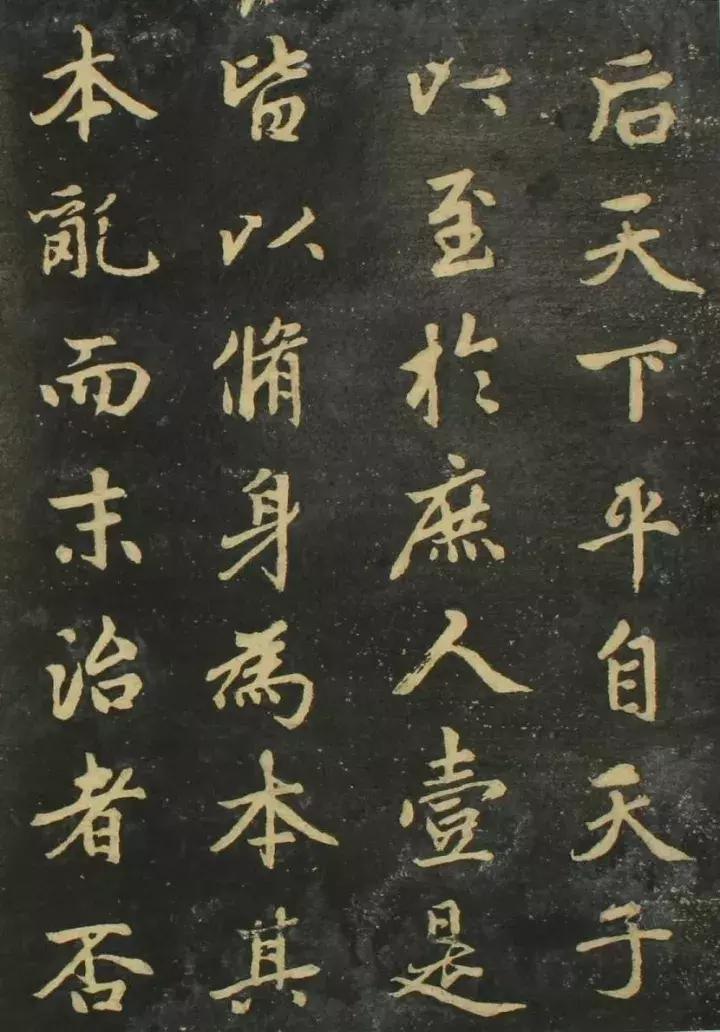 后天下平自天子
以至於庶人壹是
皆以脩身為本其
本亂而末治者否